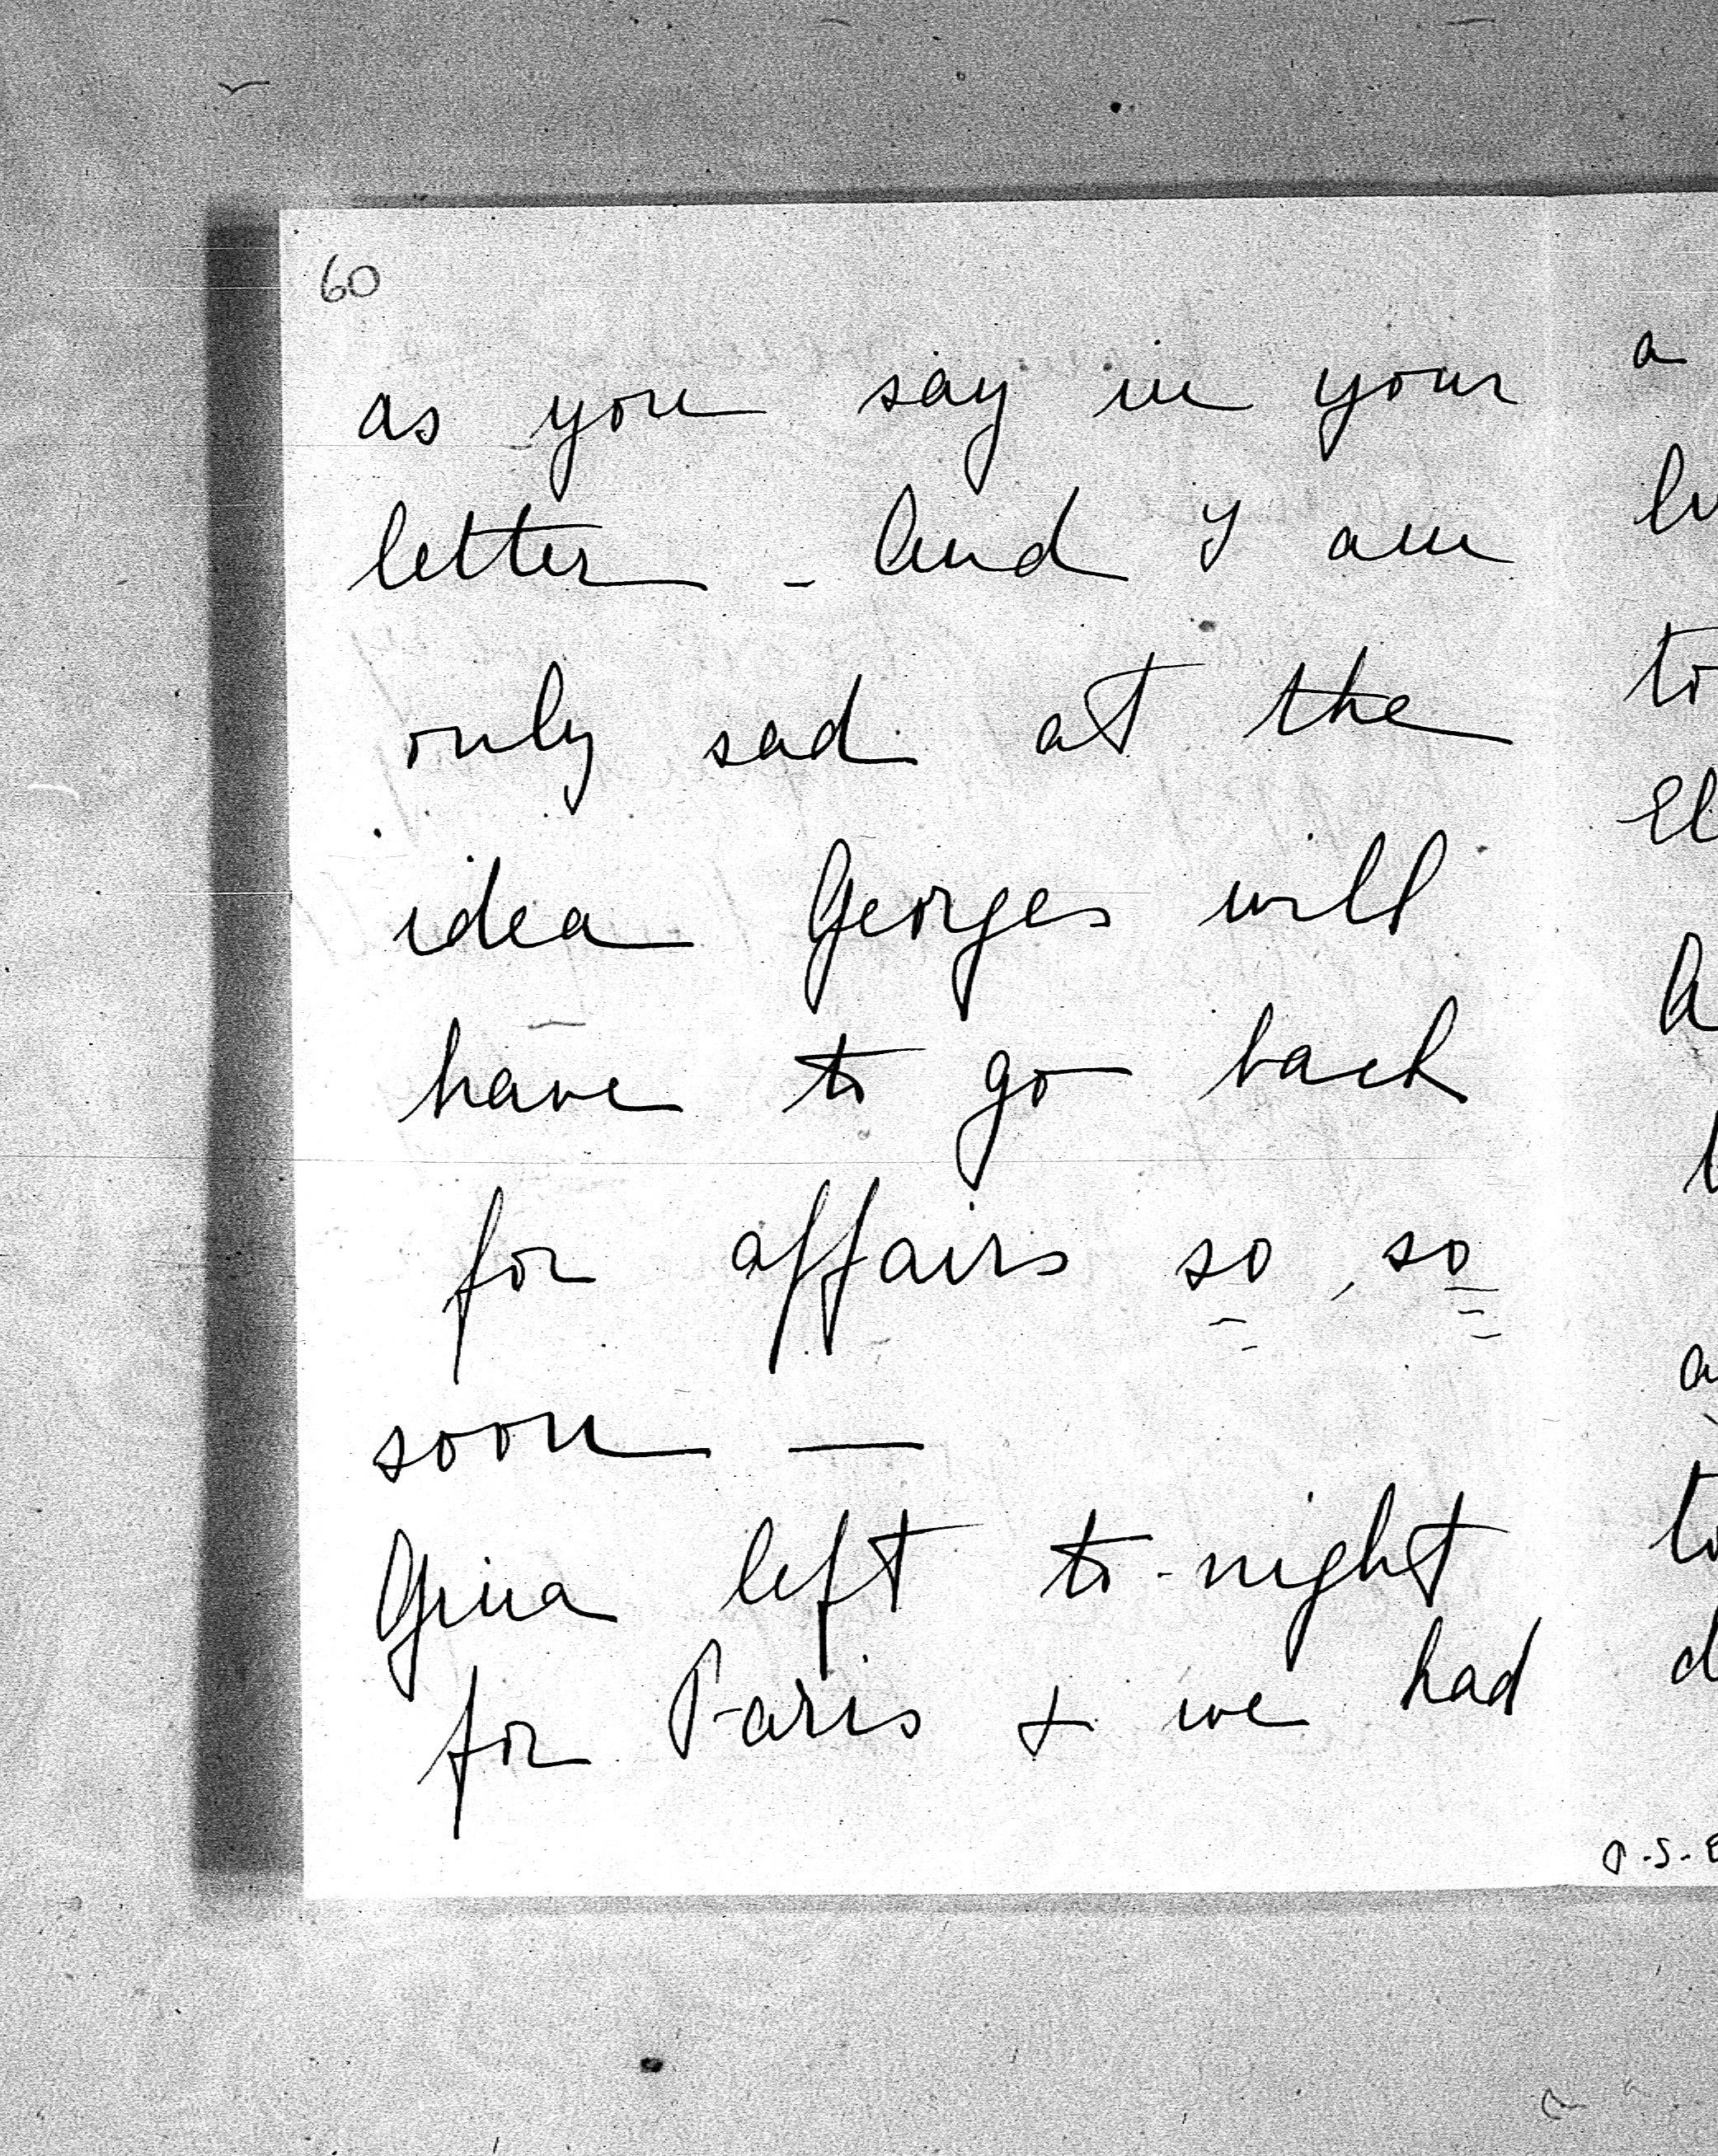 60
as you say in your
letter - And I am
only sad at the
idea Georges will
have to go back
for affairs so, so
soon —
Gina left to-night
for Paris & we had
a
to
a
to
P.S.